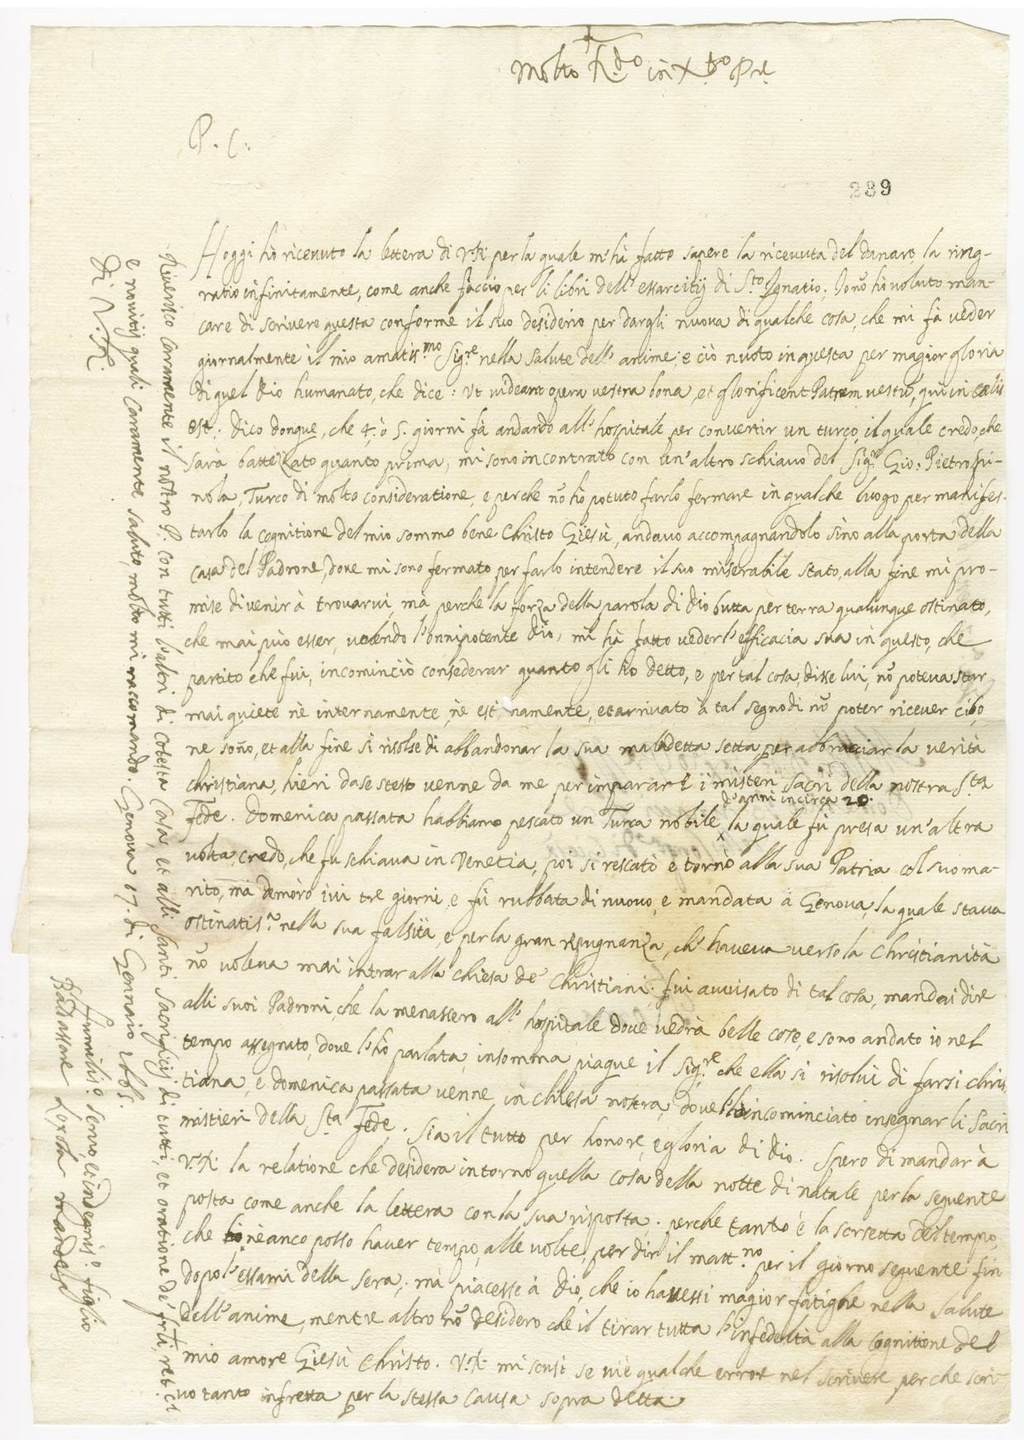 Molto R.do in X.to P.re
P. C.
289
Hoggi hò ricevuto la lettera di V.R. per la quale m'hà fatto sapere la ricevuta del danaro, la ring-
ratio infinitamente, come anche faccio per li libri dell' essarcitij di S.to Ignatio; Io nõ hò voluto man-
care di scrivere questa conforme il suo desiderio per dargli nuova di qualche cosa, che mi fà veder
giornalmente il mio amatis.mo Sig.re nella salute dell' anime; e ciò nuoto in questa per magior gloria
di quel Dio humanato, che dice: Ut videant opera vestra bona, et glorificent Patrem vestrũ, qui in cælis
est. Dico donque, che 4. ò 5. giorni fà andando all' hospitale per convertir un turco, il quale credo, che
sarà battezzato quanto prima, mi sono incontrato con un' altro schiavo del Sig.re Gio: Pietro Spi-
nola, Turco di molto consideratione, e perche nõ hò potuto farlo fermare in qualche luogo per manifes-
tarlo la cognitione del mio sommo bene Christo Giesù, andavo accompagnandolo sino alla porta della
casa del Padrone, dove mi sono fermato per farlo intendere il suo miserabile stato, alla fine mi pro-
mise di venir à trovarvi, mà perche la forza della parola di Dio butta per terra qualunque ostinato,
che mai può esser, volendo l'onnipotente Dio, mi hà fatto veder l'efficacia sua in questo, che
partito che fui, incominciò considerar quanto gli ho detto, e per tal cosa, disse lui, nõ poteva star
mai quiete nè internamente, nè esternamente, et arrivato à tal segno di nõ poter ricever cibo,
ne soño, et alla fine si risolse di abbandonar la sua maladetta setta per abbracciar la verità
christiana, hieri da se stesso venne da me per imparar i misteri sacri della nostra S.ta
d'anni incirca 20.
Fede. Domenica passata habbiamo pescato un Turca nobile, la quale fù presa un' altra
volta, credo, che fu schiava in Venetia, poi si rescatò e tornò alla sua Patria col suo ma-
rito, mà demorò ivi tre giorni, e fù rubbata di nuovo, e mandata à Genova, la quale stava
ostinatis.a nella sua falsità, e per la gran repugnanza, ch' haveva verso la Christianità
nõ voleva mai intrar alla chiesa de' Christiani. fui avvisato di tal cosa, mandai dire
alli suoi Padroni, che la menassero all' hospitale dove vedrà belle cose, e sono andato io nel
tempo assegnato, dove l'hò parlata, insomma piaque il Sig.re che ella si risolvi di farsi chris-
tiana, e domenica passata venne in chiesa nostra dove l'hò incominciato insegnar li sacri
mistieri della S.ta Fede. Sia il tutto per honore, e gloria di Dio. Spero di mandar à
V.R. la relatione che desidera intorno quella cosa della notte di natale per la seguente
posta come anche la lettera con la sua risposta; perche tanto è la scrsetta del tempo,
che nè anco posso haver tempo, alle volte, per dir il matt.no per il giorno seguente fin
dopo l'essami della sera, mà piacesse à Dio, che io havessi magior fatighe nella salute
dell' anime, mentre altro nõ desidero che il tirar tutta l'infedeltà alla cognitione del
mio amore Giesù Christo. V.R. mi scusi se vi è qualche error nel scrivere perche scri-
vo tanto infretta per la stessa causa sopra detta.
Riverisco caramente il nostro P. con tutti l'altri di cotesta Casa, et alli Santi Sacrifici di tutti, et oratione de' frlli, ret.ci
e novitij quali caramente saluto, molto mi raccomando. Genova 17. di Gennaio 1665.
Di V.R.
Humilis.o servo, e indegnis.o figlio
Baldassare Loyola Mandes